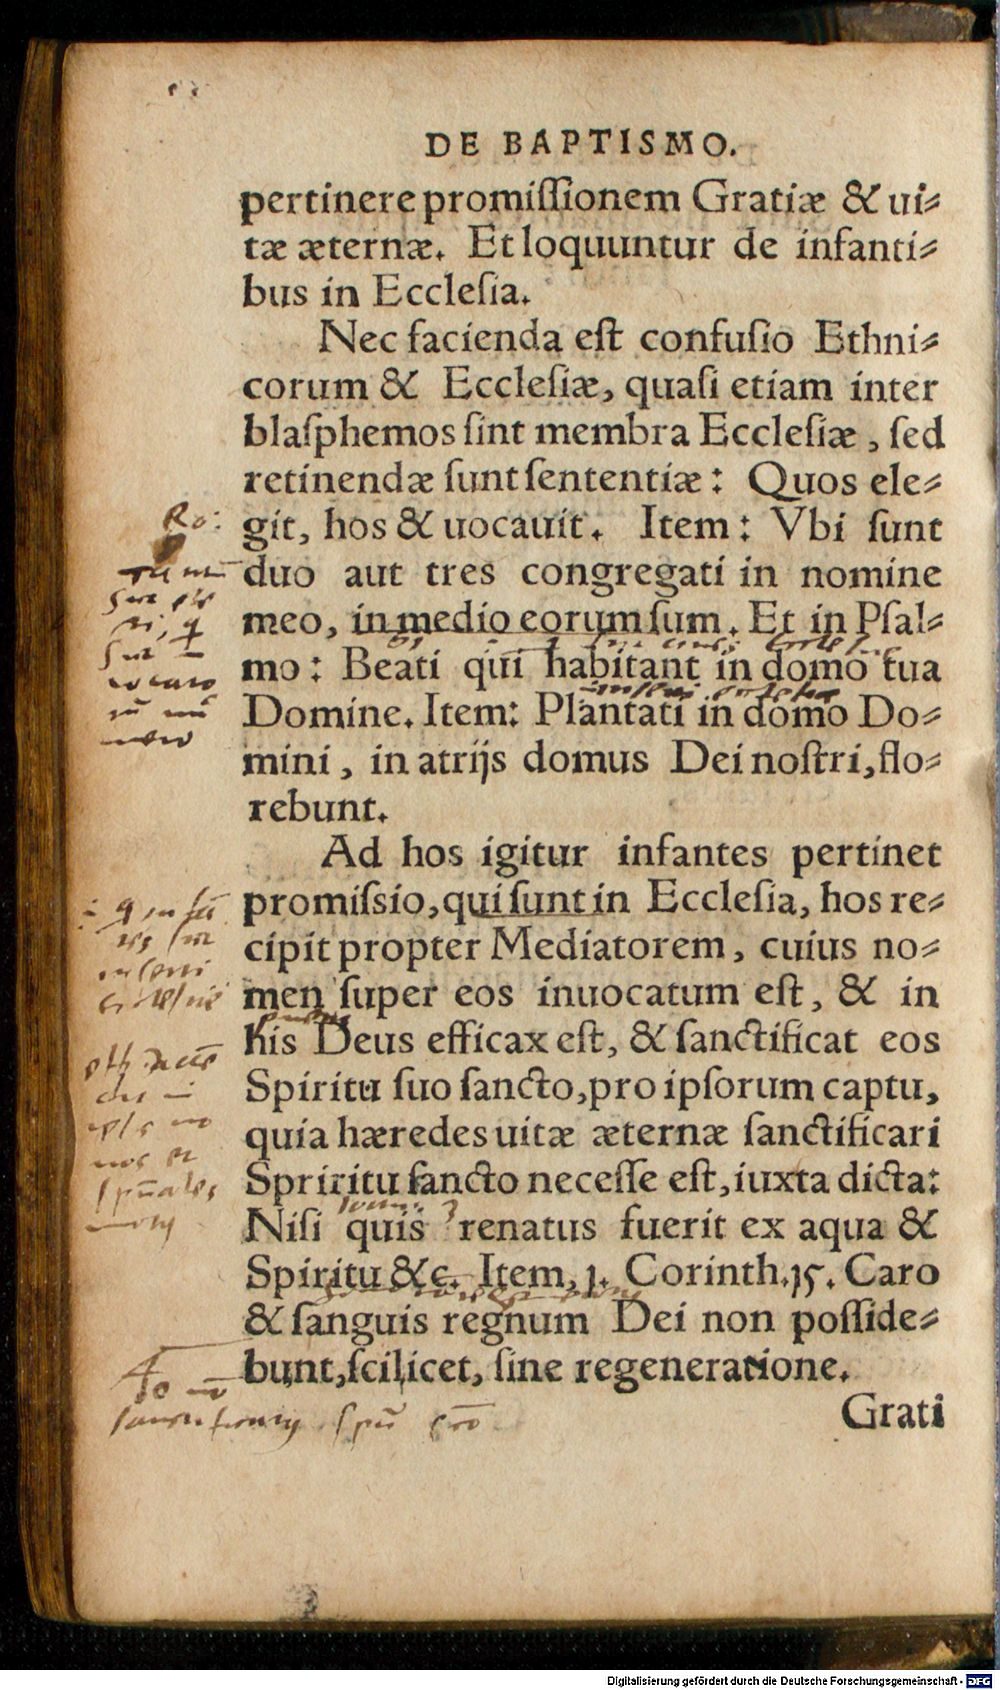 DE BAPTISMO.
pertinere promiſſionem Gratiæ & ui⸗
tæ æternæ. Et loquuntur de infanti⸗
bus in Eccleſia.
Nec facienda eſt confuſio Ethni⸗
corum & Eccleſiæ, quaſi etiam inter
blaſphemos ſint membra Eccleſiæ, ſed
retinendæ ſunt ſententiæ: Quos ele⸗
Ro:
git, hos & uocauit. Item: Vbi ſunt
duo aut tres congregati in nomine
meo, in medio eorum ſum. Et in Pſal⸗
mo: Beati qui habitant in domo tua
Domine. Item: Plantati in domo Do⸗
mini, in atrijs domus Dei noſtri, flo⸗
rebunt.
Ad hos igitur infantes pertinet
promiſsio, qui ſunt in Eccleſia, hos re⸗
cipit propter Mediatorem, cuius no⸗
men ſuper eos inuocatum eſt, & in
his Deus efficax eſt, & ſanctificat eos
Spiritu ſuo ſancto, pro ipſorum captu,
quia hæredes uitæ æternæ ſanctificari
Spriritu ſancto neceſſe eſt, iuxta dicta:
Niſi quis renatus fuerit ex aqua &
Spiritu &c. Item, 1. Corinth. 15. Caro
& ſanguis regnum Dei non poſſide⸗
bunt, ſcilicet, ſine regeneratione.
Grati
Digitalisierung gefördert durch die Deutsche Forschungsgemeinschaft - DFG